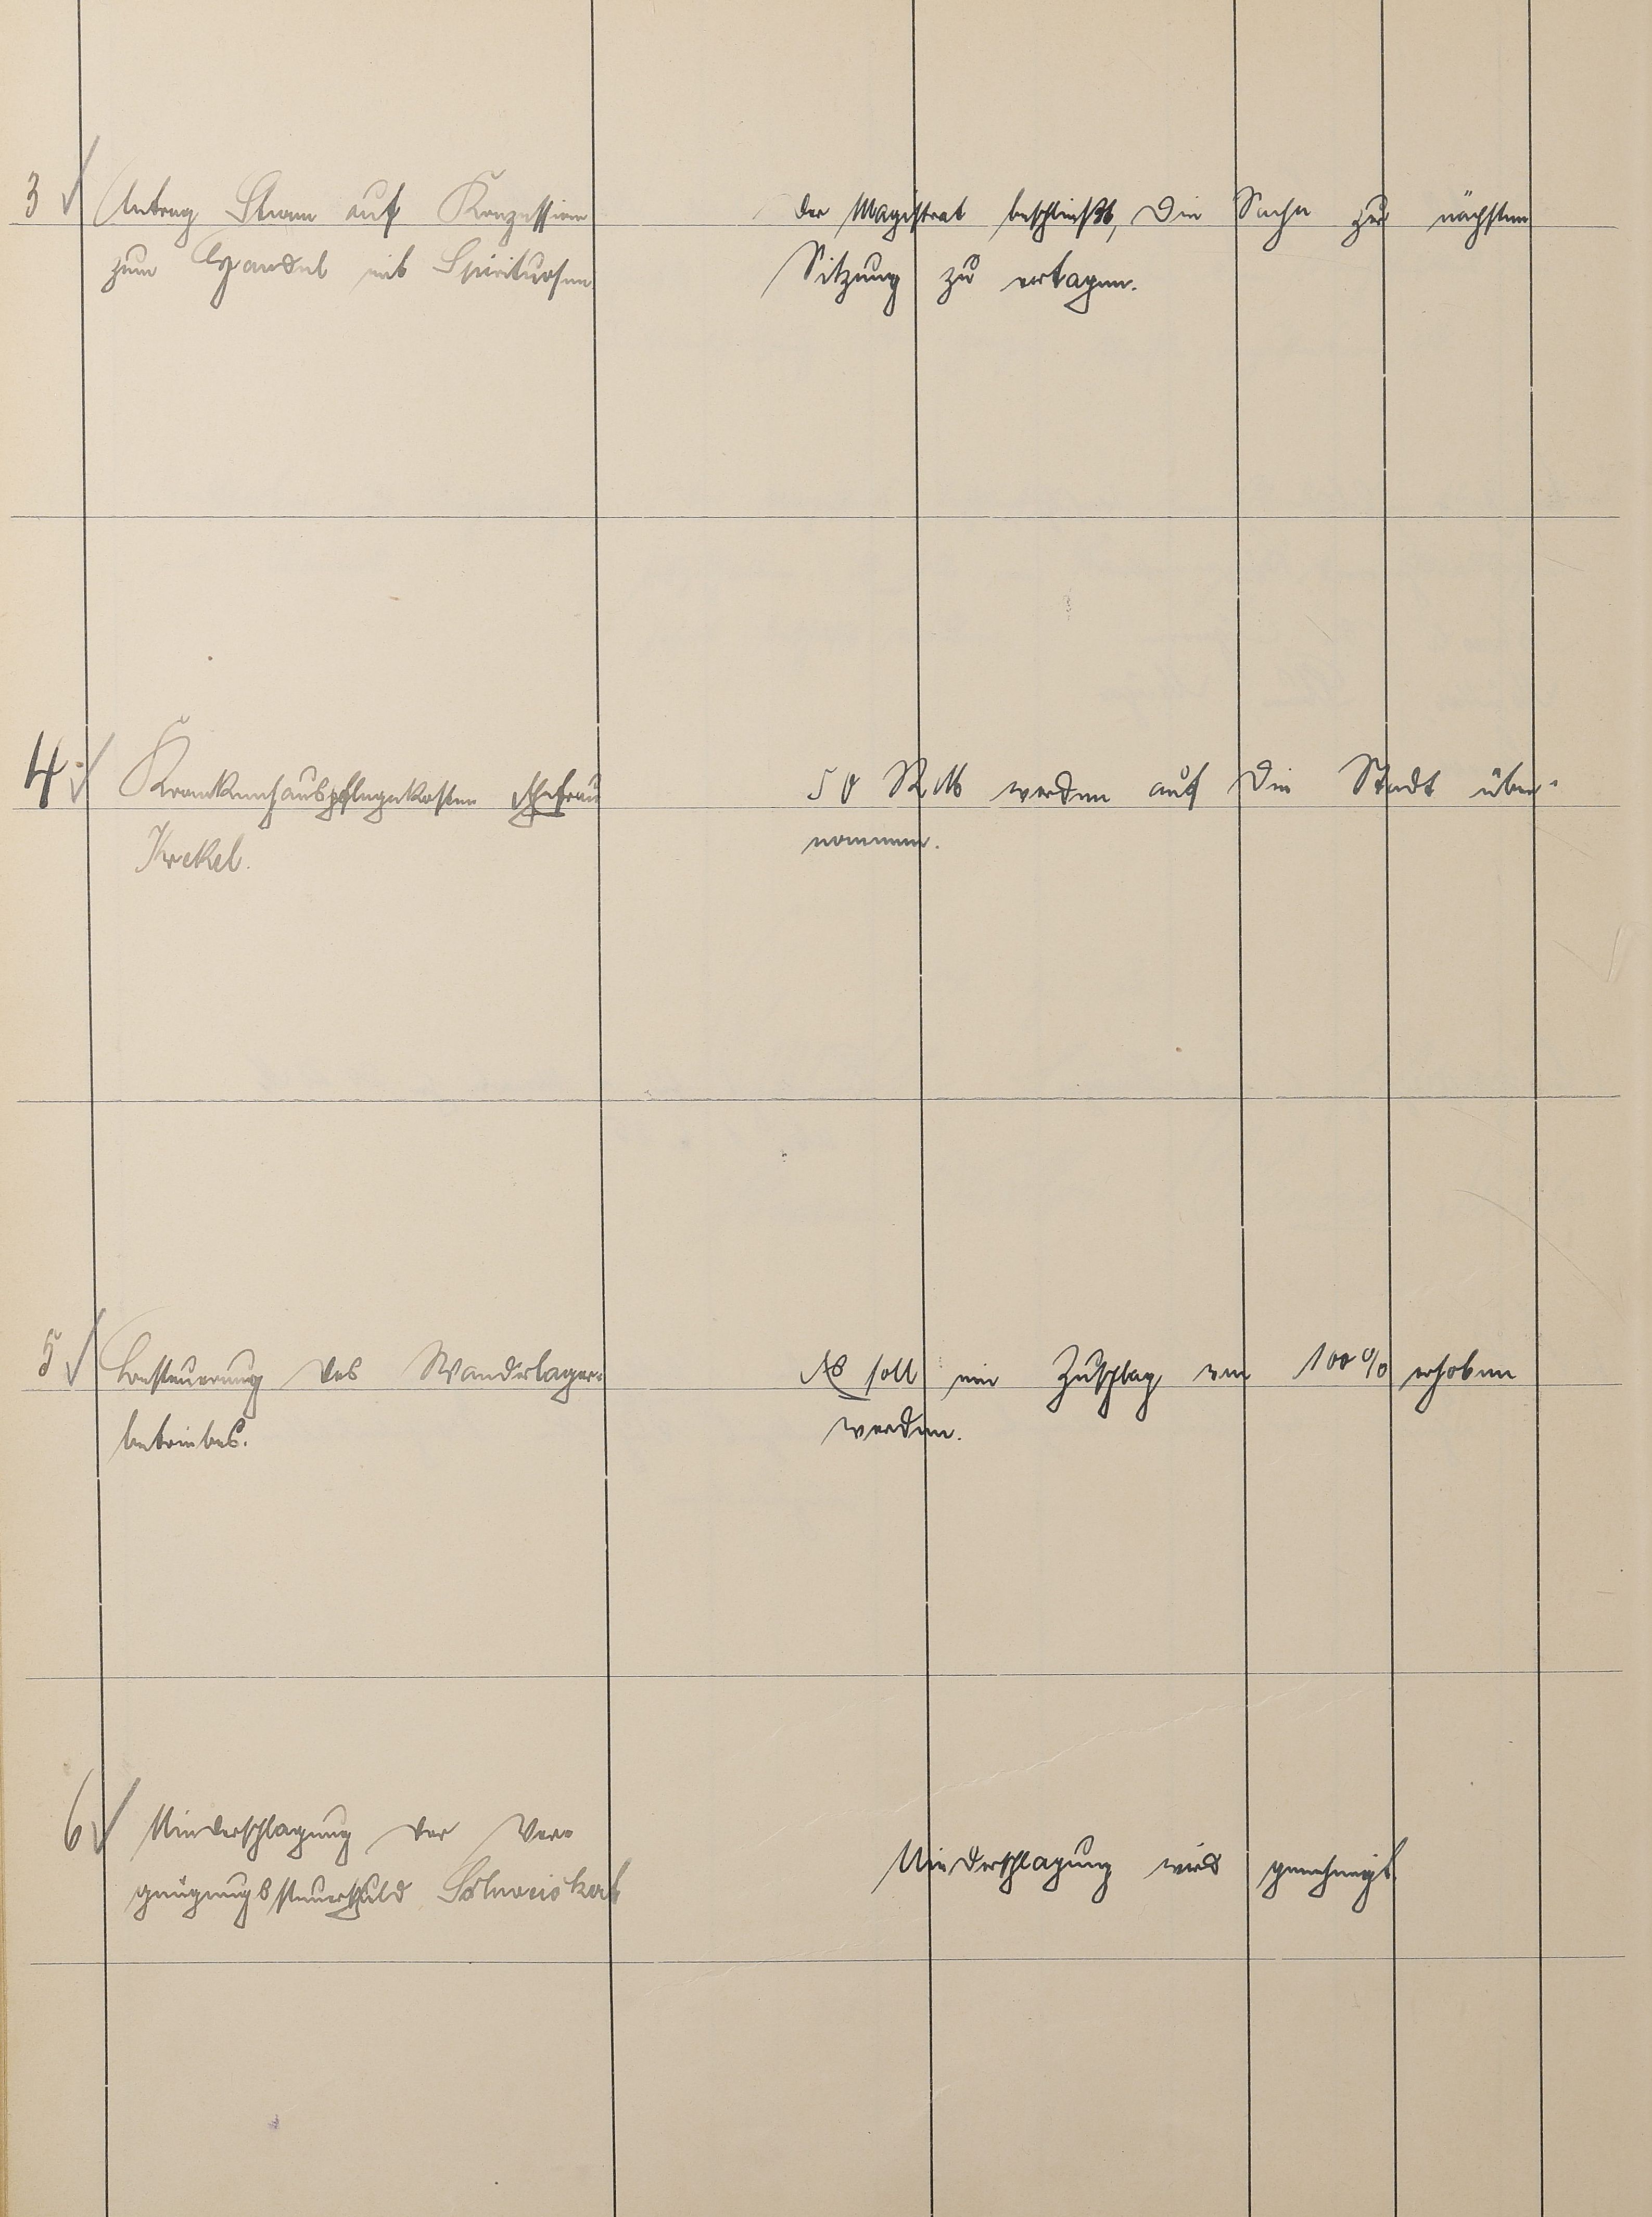 3 Antrag Stumm auf Konzession
zum Handel mit Spirituosen
der Magistrat beschließt, die Sache zur nächsten
Sitzung zu vertagen.
4. Krankenhauspflegekosten Ehefrau
Krekel.
50 RM werden auf die Stadt über-
nommen.
5 Besteuerung des Wanderlager-
betriebes.
Es soll ein Zuschlag von 100% erhoben
werden.
6 Niederschlagung der Ver-
gnügungssteuerschuld
Niederschlagung wird genehmigt.